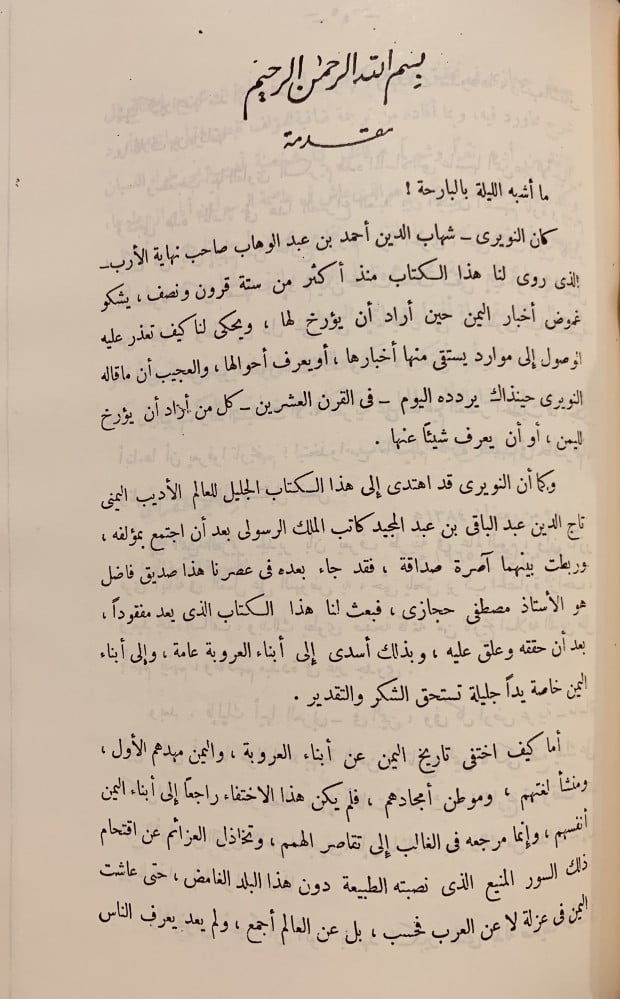 بسم الله الرحمن الرحيم
مقدمة
ما أشبه الليلة بالبارحة !
كان النويرى ــ شهاب الدين أحمد بن عبد الوهاب صاحب نهاية الأرب ــ
الذى روى لنا هذا الكتاب منذ أكثر من ستة قرون ونصف ، يشكو
غموض أخبار اليمن حين أراد أن يؤرخ لها ، ويحكى لنا كيف تعذر عليه
الوصول إلى موارد يستقى منها أخبارها ، أويعرف أحوالها ، والعجيب أن ماقاله
النويرى حينذاك يردده اليوم ــ فى القرن العشرين ــ كل من أراد أن يؤرخ
لليمن ، أو أن يعرف شيئاً عنها .
وكما أن النويرى قد اهتدى إلى هذا الكتاب الجليل للعالم الأديب اليمنى
تاج الدين عبد الباقى بن عبد المجيد كاتب الملك الرسولى بعد أن اجتمع بمؤلفه ،
وربطت بينهما آصرة صداقة ، فقد جاء بعده فى عصرنا هذا صديق فاضل
هو الأستاذ مصطفى حجازى ، فبعث لنا هذا الكتاب الذى يعد مفقوداً ،
بعد أن حققه وعلق عليه ، وبذلك أسدى إلى أبناء العروبة عامة ، وإلى أبناء
اليمن خاصة يداً جليلة تستحق الشكر والتقدير .
أما كيف اختفى تاريخ اليمن عن أبناء العروبة ، واليمن مهدهم الأول ،
ومنشأ لغتهم ، وموطن أمجادهم ، فلم يكن هذا الاختفاء راجعاً إلى أبناء اليمن
أنفسهم ، وإنما مرجعه فى الغالب إلى تقاصر الهمم ، وتخاذل العزائم عن اقتحام
ذلك السور المنيع الذى نصبته الطبيعة دون هذا البلد الغامض ، حتى عاشت
اليمن فى عزلة لا عن العرب فحسب ، بل عن العالم أجمع ، ولم يعد يعرف الناس